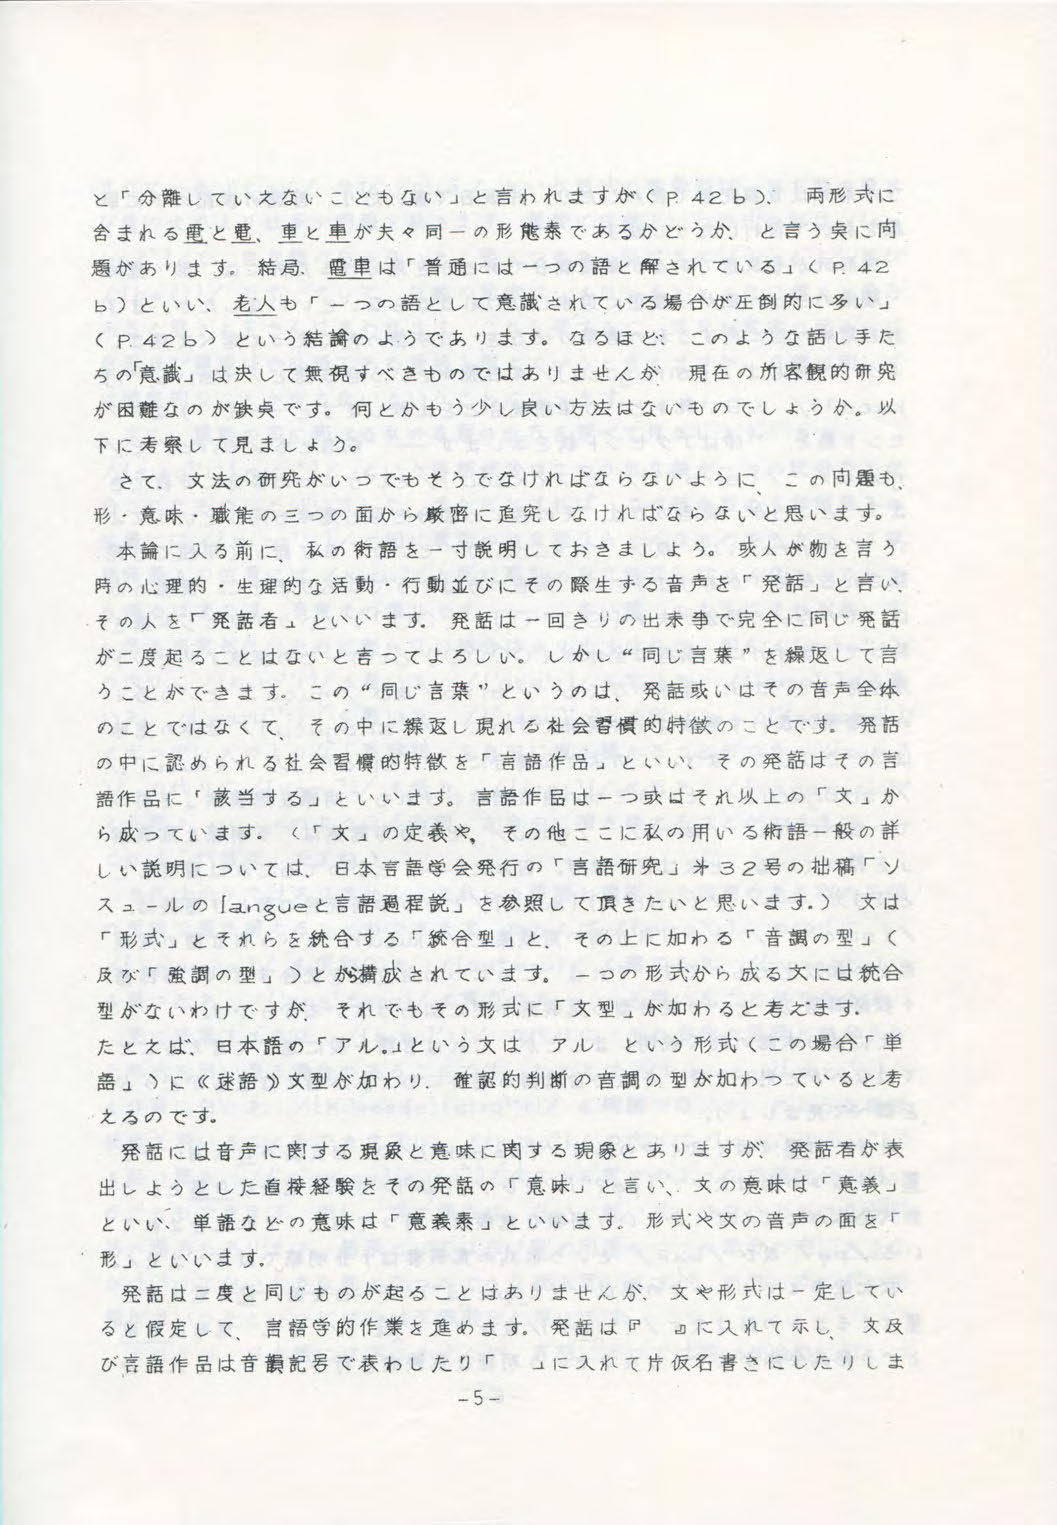 と「分離していえないこともない」と言われますが(P.42b)、両形式に
含まれる電と電、車と車が夫々同一の形態素であるかどうか、と言う点に問
題があります。結局、電車は「普通には一つの語と解されている」(P.42
b)といい、老人も「一つの語として意識されている場合が圧倒的に多い」
(P.42b)という結論のようであります。なるほど、このような話し手た
ちの「意識」は決して無視すべきものではありませんが、現在の所客観的研究
が困難なのが缺点です。何とかもう少し良い方法はないものでしょうか。以
下に考察して見ましょう。
さて、文法の研究がいつでもそうでなければならないように、この問題も、
形・意味・職能の三つの面から厳密に追究しなければならないと思います。
本論に入る前に、私の術語を一寸説明しておきましよう。或人が物を言う
時の心理的・生理的な活動・行動並びにその際生ずる音声を「発話」と言い、
その人を「発話者」といいます。発話は一回きりの出来事で完全に同じ発話
が二度起ることはないと言つてよろしい。しかし“同じ言葉”を繰返して言
うことができます。この“同じ言葉”というのは、発話或いはその音声全体
のことではなくて、その中に繰返し現れる社会習慣的特徴のことです。発話
の中に認められる社会習慣的特徴を「言語作品」といい、その発話はその言
語作品に「該当する」といいます。言語作品は一つ或はそれ以上の「文」か
ら成っています。(「文」の定義や、その他ここに私の用いる術語一般の詳
しい説明については、日本言語学会発行の「言語研究」㐧32号の拙稿「ソ
スュールのlangueと言語過程説」を参照して頂きたいと思います。)文は
「形式」とそれらを統合する「統合型」と、その上に加わる「音調の型」(
及び「強調の型」)とから構成されています。一つの形式から成る文には統合
型がないわけですが、それでもその形式に「文型」が加わると考えます。
たとえば、日本語の「アル。」という文は アル という形式(この場合「単
語」)に《述語》文型が加わり、確認的判断の音調の型が加わつていると考
えるのです。
発話には音声に関する現象と意味に関する現象とありますが、発話者が表
出しようとした直接経験をその発話の「意味」と言い、文の意味は「意義」
といい、単語などの意味は「意義素」といいます。形式や文の音声の面を「
形」といいます。
発話は二度と同じものが起ることはありませんが、文や形式は一定してい
ると仮定して、言語学的作業を進めます。発話は『 』に入れて示し、文及
び言語作品は音韻記号で表わしたり「 」に入れて片仮名書きにしたりしま
-5-